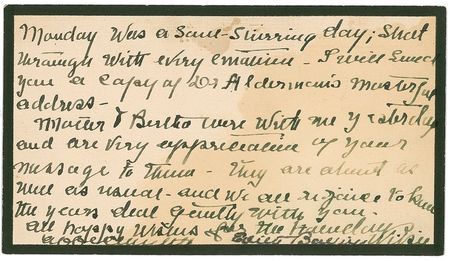 Monday was a soul-stirring day, shot
through with every emotion - I will send
you a copy of Dr Alderman's masterful
address -
Mother & Bertha were with me yesterday
and are very appreciative of your
message to them - They are about as
well as usual - and we all rejoice to know
the years deal gently with you.
all happy wishes for the